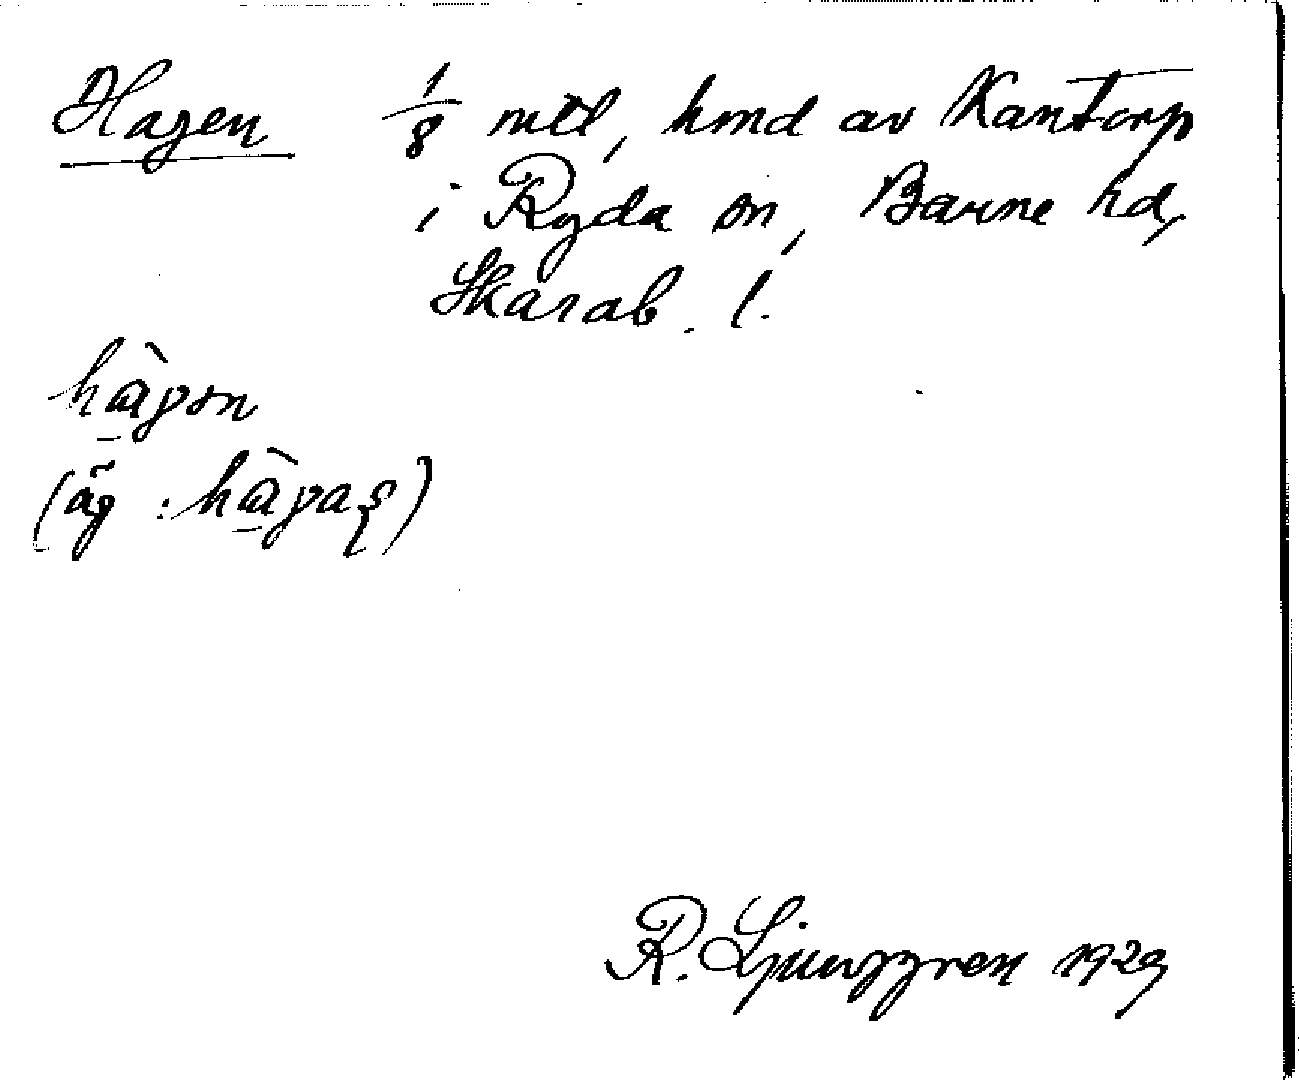 Hagen 1/8 mtl, hmd av Kantorp
i Ryda sn, Barne hd,
Skarab. l.
hàgən
(äg : hàgaș)
R. Ljunggren 1929